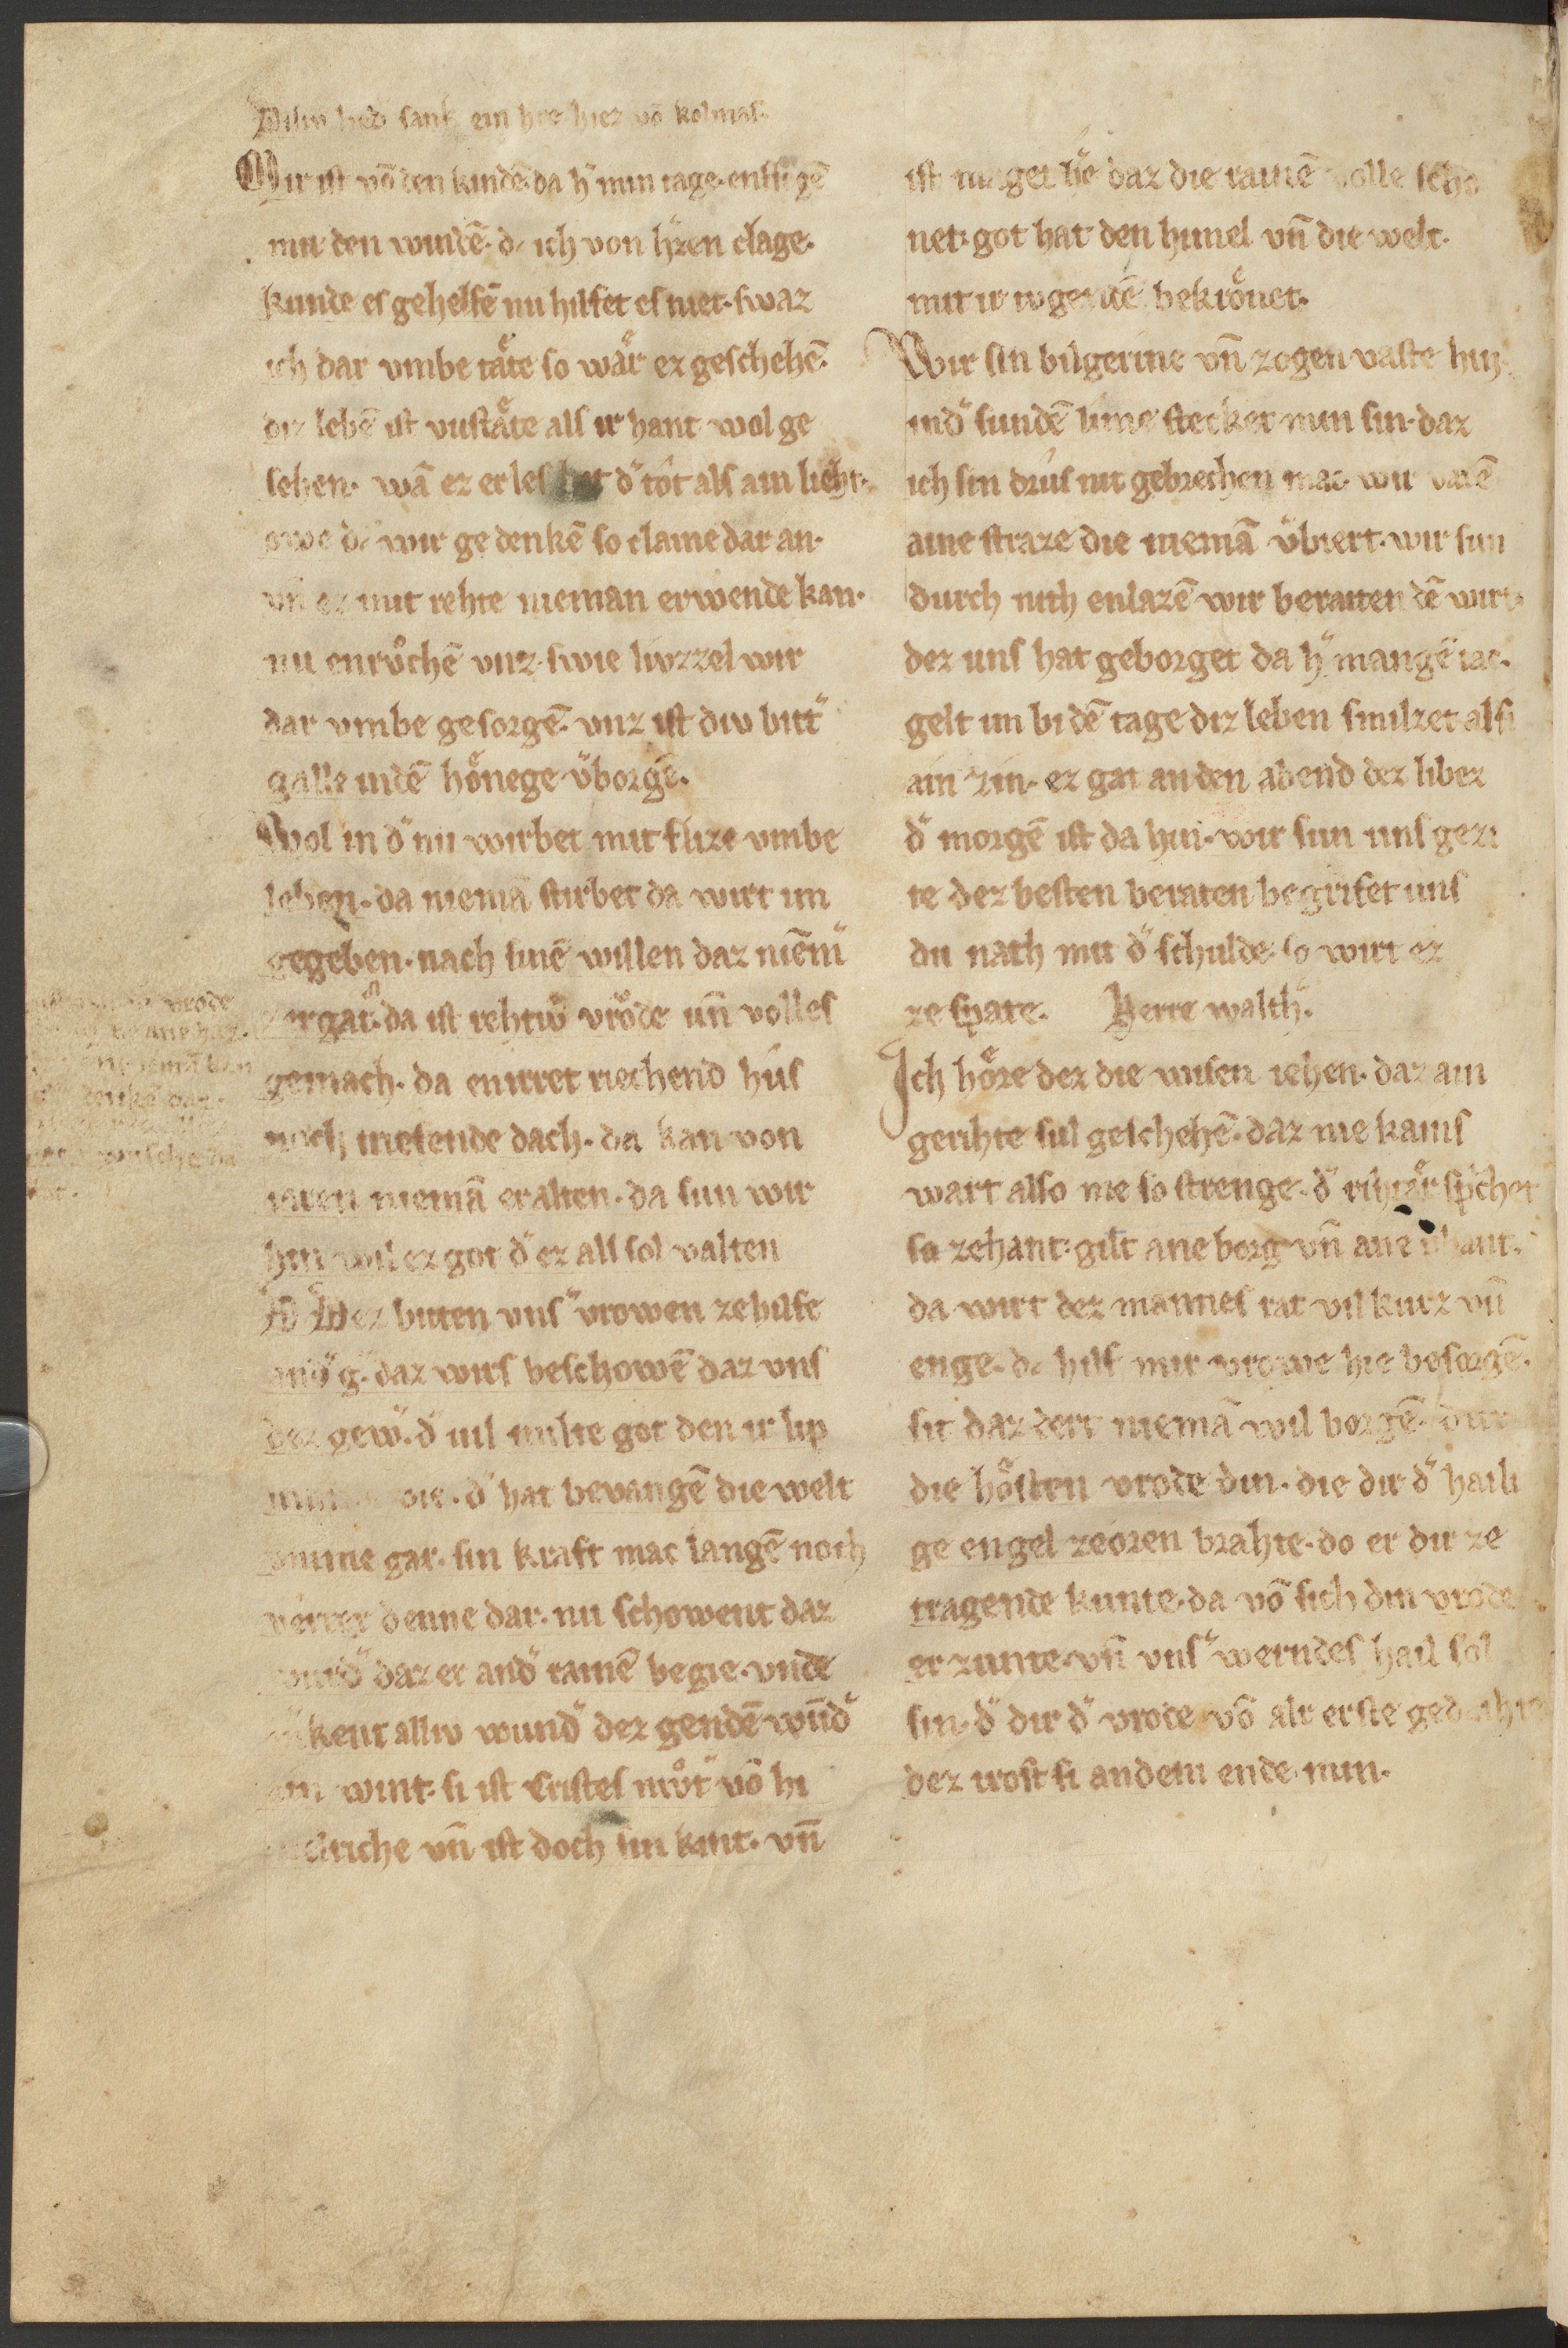 Disiv liet sank ein hre hiez vō kolmas.
Mir ist vō den kindē da h̄ min tage. enflogē
mit den windē. dc ich von h̄zen clage.
kunde es gehelfē nu hilfet es niet. swaz
ich dar vmbe tæ̂te so wæ̂r ez geschehē.
diz lebē ist vnstæ̂te als ir hant wol ge
sehen. wā ez erlescht d̄ tôt als ain lieht.
owe dc wir gedenkē so claine dar an.
vn̄ ez mit rehte nieman erwende kan.
nu enrůchē vnz. swie livzzel wir
dar vmbe gesorgē. vnz ist div bitt̄
galle in dē hönege v̄borgē.
Wol in d̄ nu wirbet mit flize vmbe
leben. da niemā stirbet da wirt im
gegeben. nach sinē willen daz niem̄
zergat. da ist rehtiv vröde un̄ volles
gemach. da enirret riechend hûs
noch triefende dach. da kan von
iaren niemā eralten. da sun wir
hin wil ez got d̄ ez als sol walten
Dez biten vns̄ vrowen ze hilfe
daz wirs beschowē daz vns
dez gew̄. d̄ uil milte got den ir lip
d̄ hat bevangē die welt
vmme gar. sin kraft mac langē noch
verrer denne dar. nu schowent daz
daz er and̄ rainē begie. vnde
kent alliv wund̄ dez gendē wnd̄
ain wint. si ist Cristes můt̄ vō hi
melriche vn̄ ist doch sin kint. vn̄
ist maget hē daz die rainē volle scho
net. got hat den himel vn̄ die welt.
mit ir tvgendē bekrönet.
Wir sin bilgerine vn̄ zogen vaste hin.
in d̄ sundē lime stecket min sin. daz
ich sin drus nit gebrechen mac. wir varē
aine straze die niemā v̄birt. wir sun
durch nith enlazē wir beraiten dē wirt.
der uns hat geborget da h̄ mangē tac.
gelt im bi dē tage diz leben smilzet alsi
ain zin. ez gat an den abend dez libez
d̄ morgē ist da hin. wir sun uns gezi
te dez besten beraten begrifet uns
diu nath mit d̄ schulde. so wirt ez
ze spate. Herre walth̄.
Ich höre dez die wisen iehen. daz ain
gerihte sul geschehē. daz nie kains
wart also nie so strenge. d̄ rihtær sp̄chet
sa zehant. gilt ane borg vn̄ ane phant.
da wirt dez mannes rat vil kurz vn̄
enge. dc hilf mir vrowe hie besorgē.
sit daz dert niemā wil borgē. dur
die höhsten vrode din. die dir d̄ haili
ge engel zeoren brahte. do er dir ze
tragende kunte. da vō sich din vrode
erzunte. vn̄ vns̄ werndes hail sol
sin. d̄ dir d̄ vrode vō alr erste gedahte
dez trost si an dem ende min.